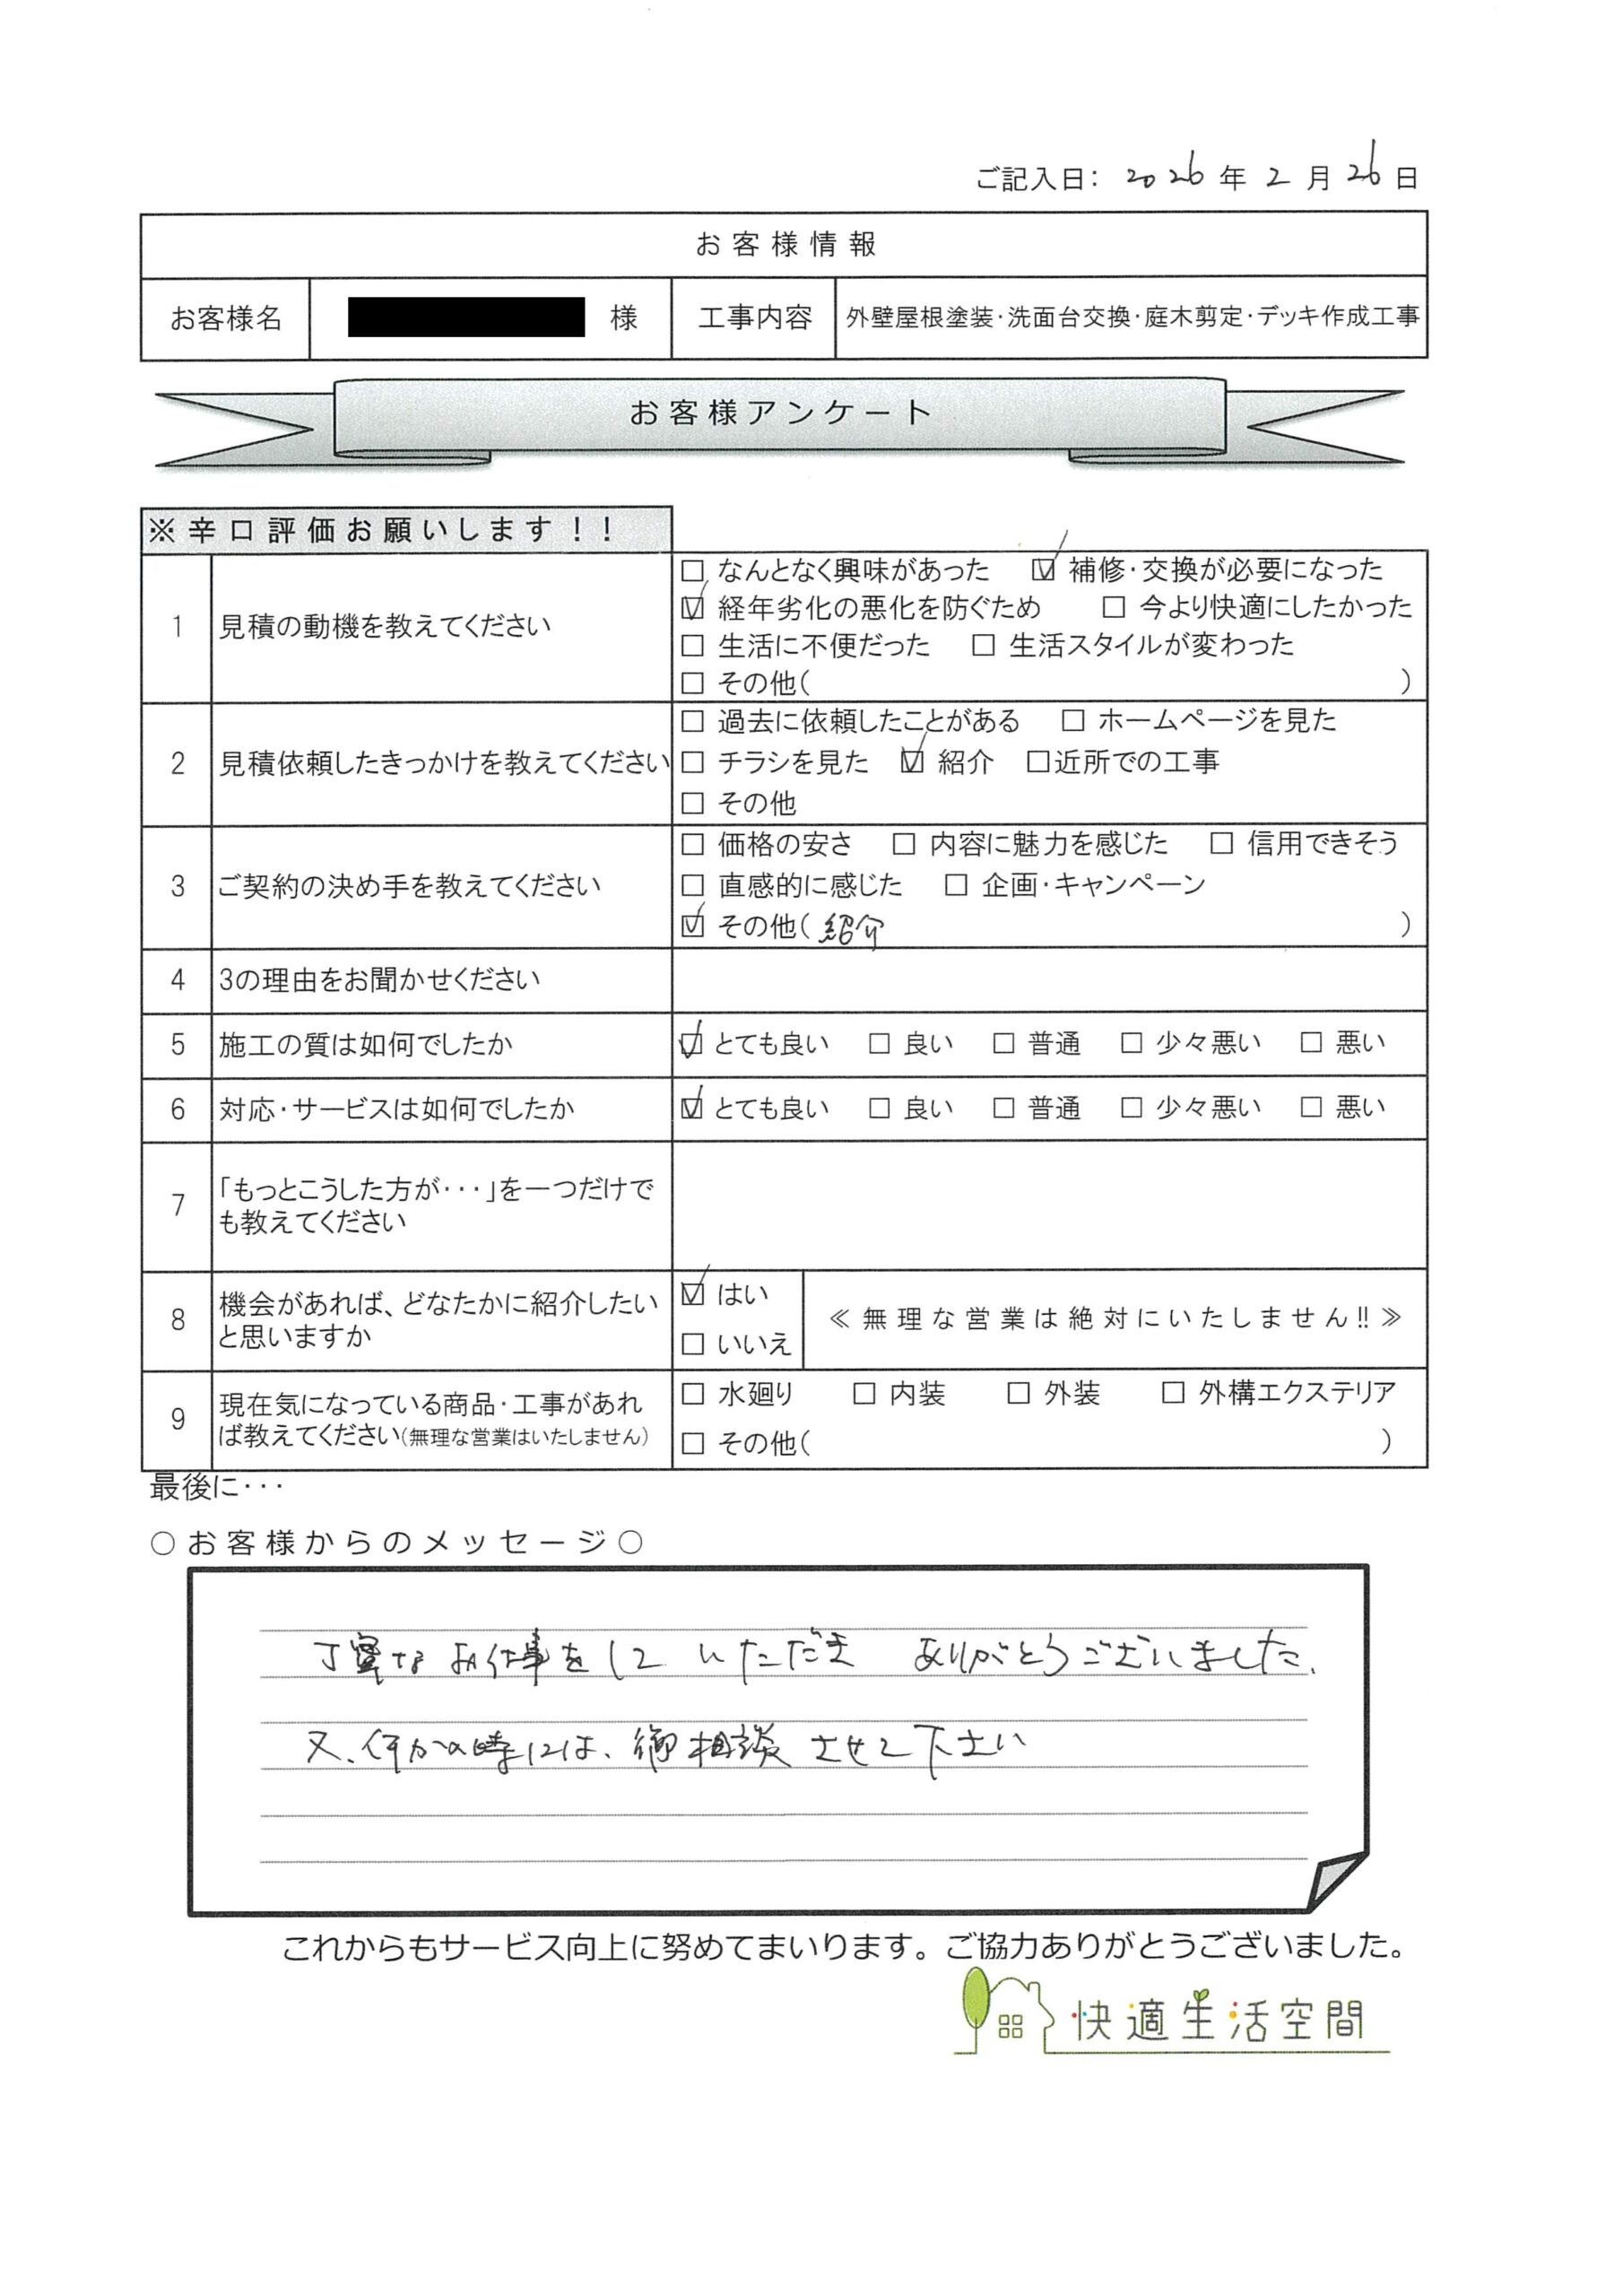 ご記入日： 2026 年 2 月 26 日
お客様情報
お客様名 様 工事内容 外壁屋根塗装・洗面台交換・庭木剪定・デッキ作成工事
お客様アンケート
※辛口評価お願いします！！
1 見積の動機を教えてください
□ なんとなく興味があった ☑ 補修・交換が必要になった
☑ 経年劣化の悪化を防ぐため □ 今より快適にしたかった
□ 生活に不便だった □ 生活スタイルが変わった
□ その他（ ）
2 見積依頼したきっかけを教えてください
□ 過去に依頼したことがある □ ホームページを見た
□ チラシを見た ☑ 紹介 □近所での工事
□ その他
3 ご契約の決め手を教えてください
□ 価格の安さ □ 内容に魅力を感じた □ 信用できそう
□ 直感的に感じた □ 企画・キャンペーン
☑ その他（ 紹介 ）
4 3の理由をお聞かせください
5 施工の質は如何でしたか ☑ とても良い □ 良い □ 普通 □ 少々悪い □ 悪い
6 対応・サービスは如何でしたか ☑ とても良い □ 良い □ 普通 □ 少々悪い □ 悪い
7 「もっとこうした方が・・・」を一つだけで
も教えてください
8 機会があれば、どなたかに紹介したい
と思いますか
☑ はい
□ いいえ
≪無理な営業は絶対にいたしません!!≫
9 現在気になっている商品・工事があれ
ば教えてください（無理な営業はいたしません）
□ 水廻り □ 内装 □ 外装 □ 外構エクステリア
□ その他（ ）
最後に・・・
○お客様からのメッセージ○
丁寧なお仕事をして いただき ありがとうございました、
又、何かの時には、御相談させて下さい
これからもサービス向上に努めてまいります。ご協力ありがとうございました。
快適生活空間